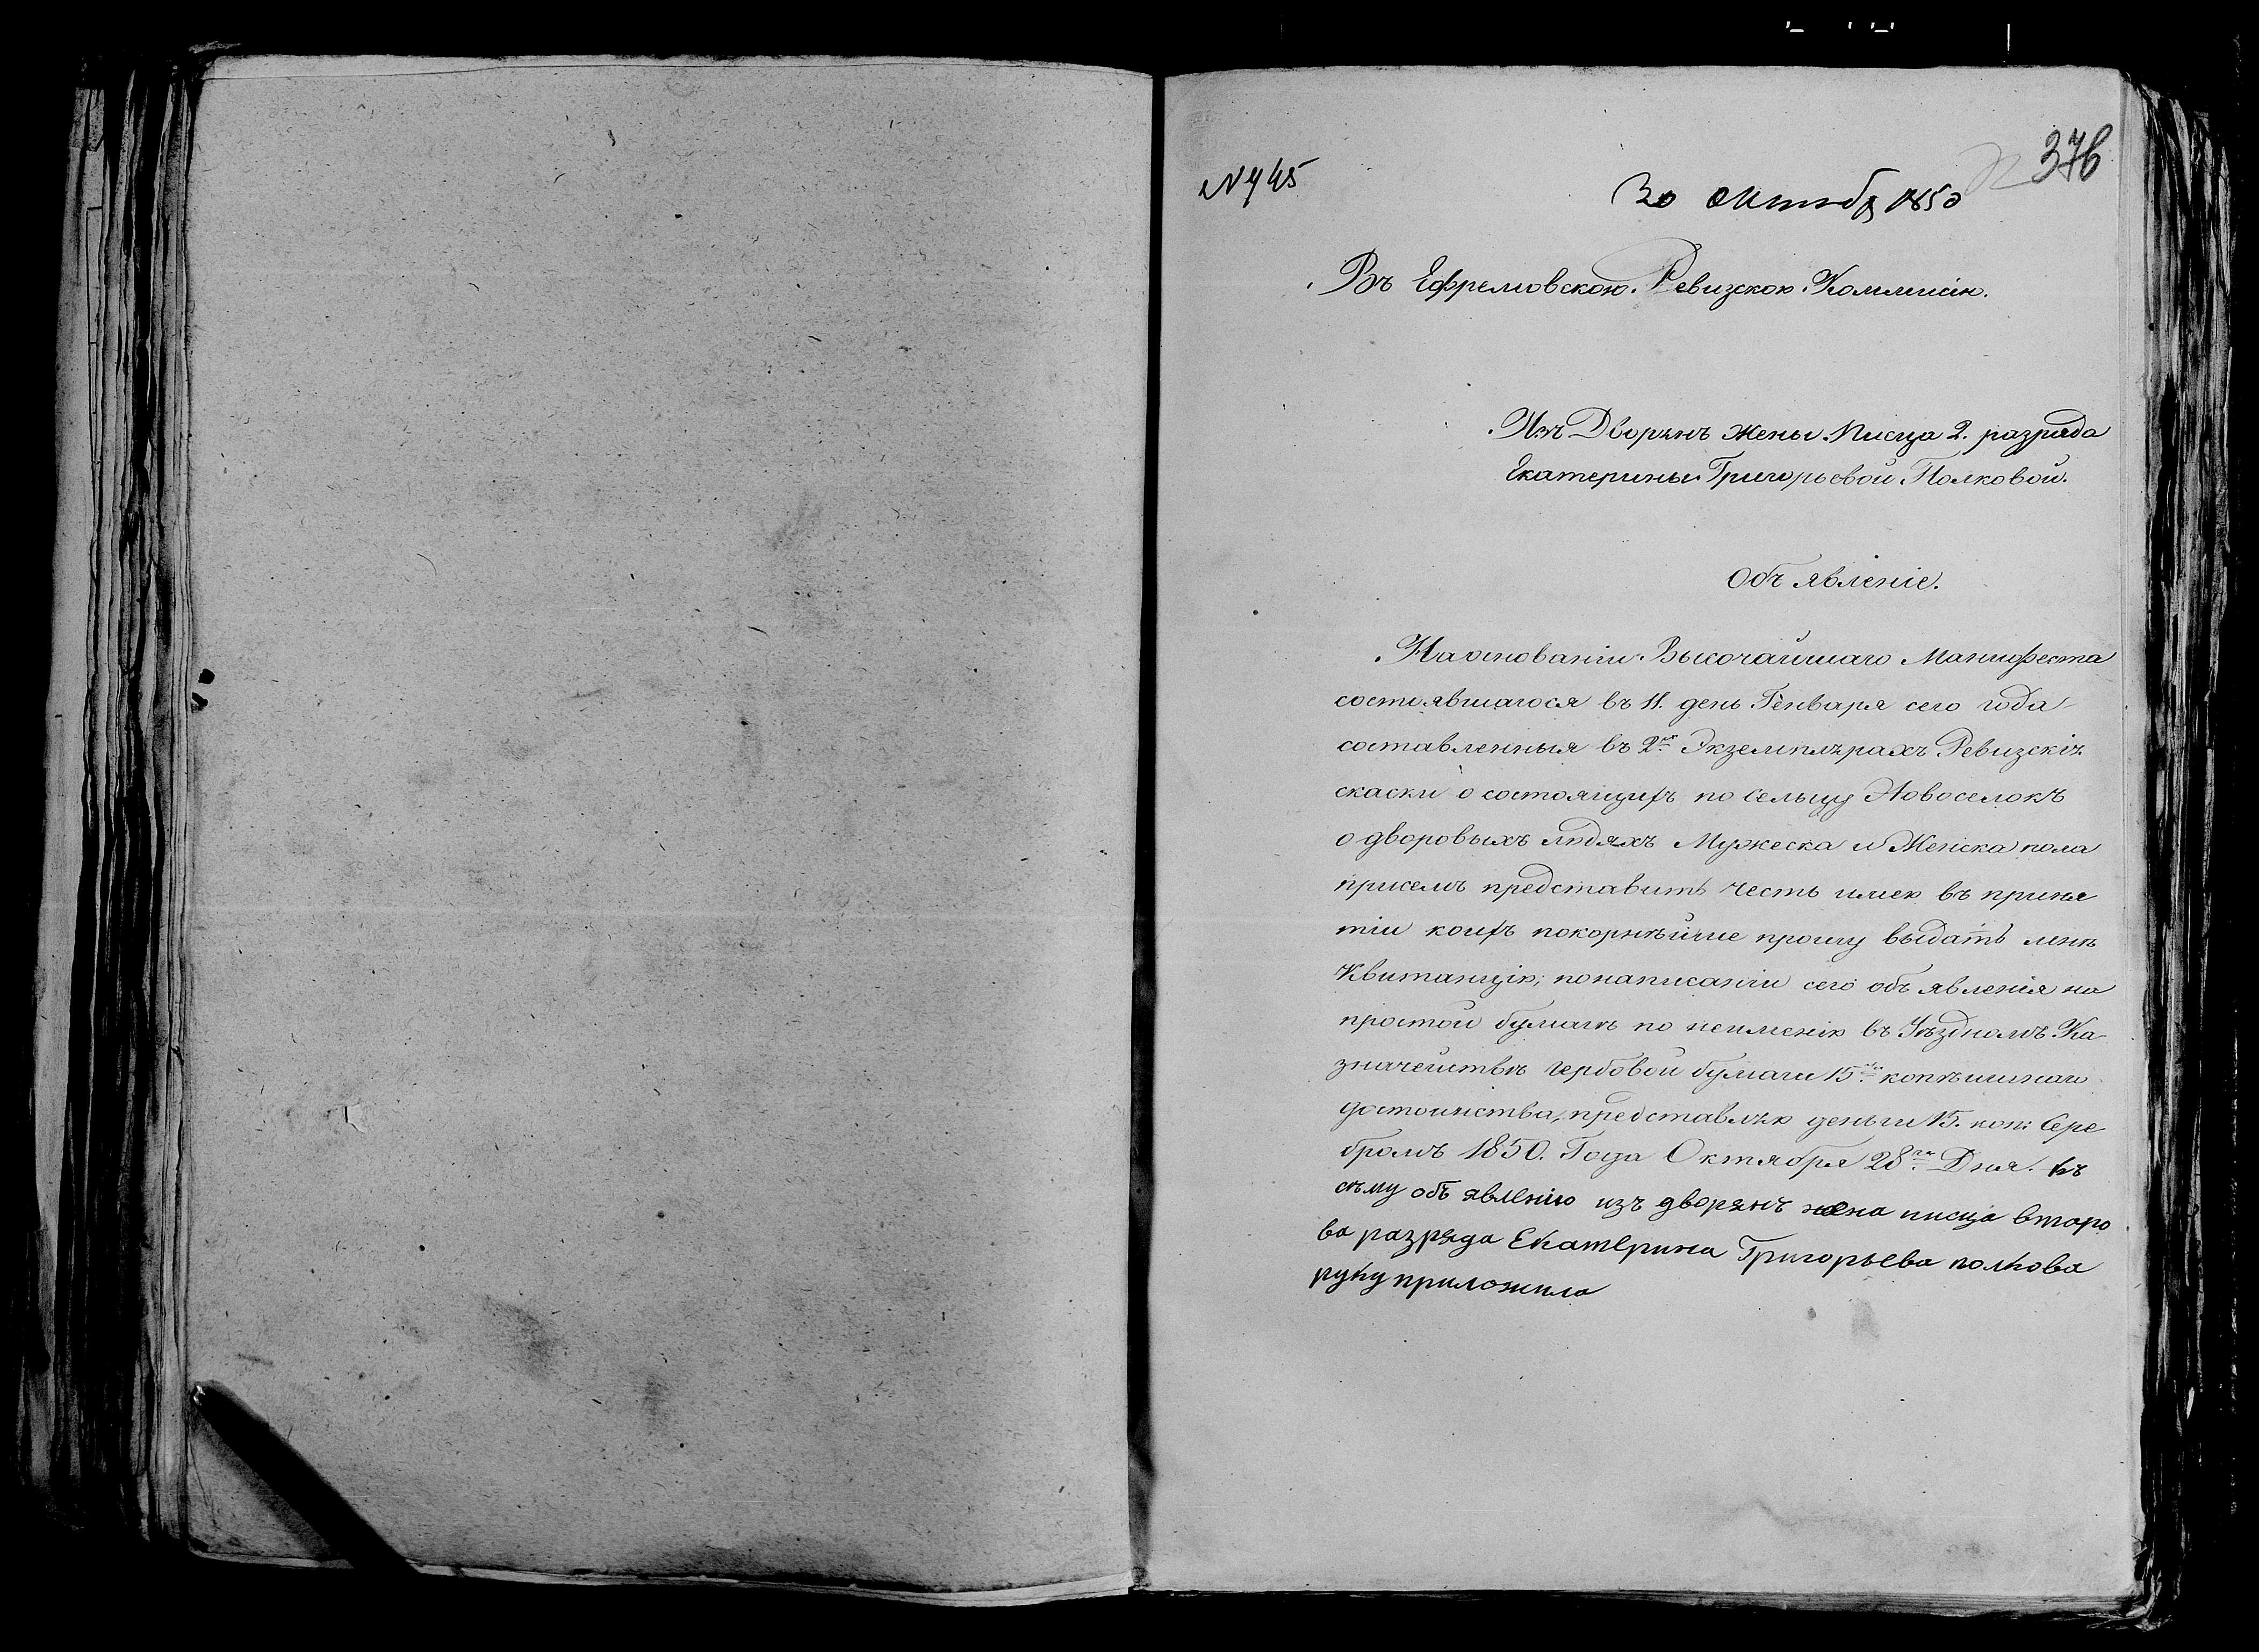 376
№ 445
30 Октябр 1850
Въ Ефремовскою Ревизскою Коммисію.
Изъ Дворянъ жены Писца 2. разряда
Екатерины Григорьевой Полковой.
Объявленіе.
На основаніи Высочайшаго Манифеста
состоявшагося въ 11. день Генваря сего года
составленныя въ 2хъ Экземплярахъ Ревизскія
скаски о состоящихъ по сельцу Новоселокъ
о дворовыхъ людяхъ Мужеска и Женска пола
присемъ представить честь имею въ приня
тіи коихъ покорнѣйше прошу выдать мнѣ
Квитанцію; по написаніи сего объявленія на
простой бумагѣ по неименію въ Уѣздномъ Ка-
значействѣ гербовой бумаги 15ти копѣишнаго
достоинства, представляю деньги 15. коп: Сере
бромъ 1850. Года Октября 28го Дня. къ
сѣму объявлению изъ дворянъ жена писца второ
ва разряда Екатерина Григорьева полкова
руку приложила